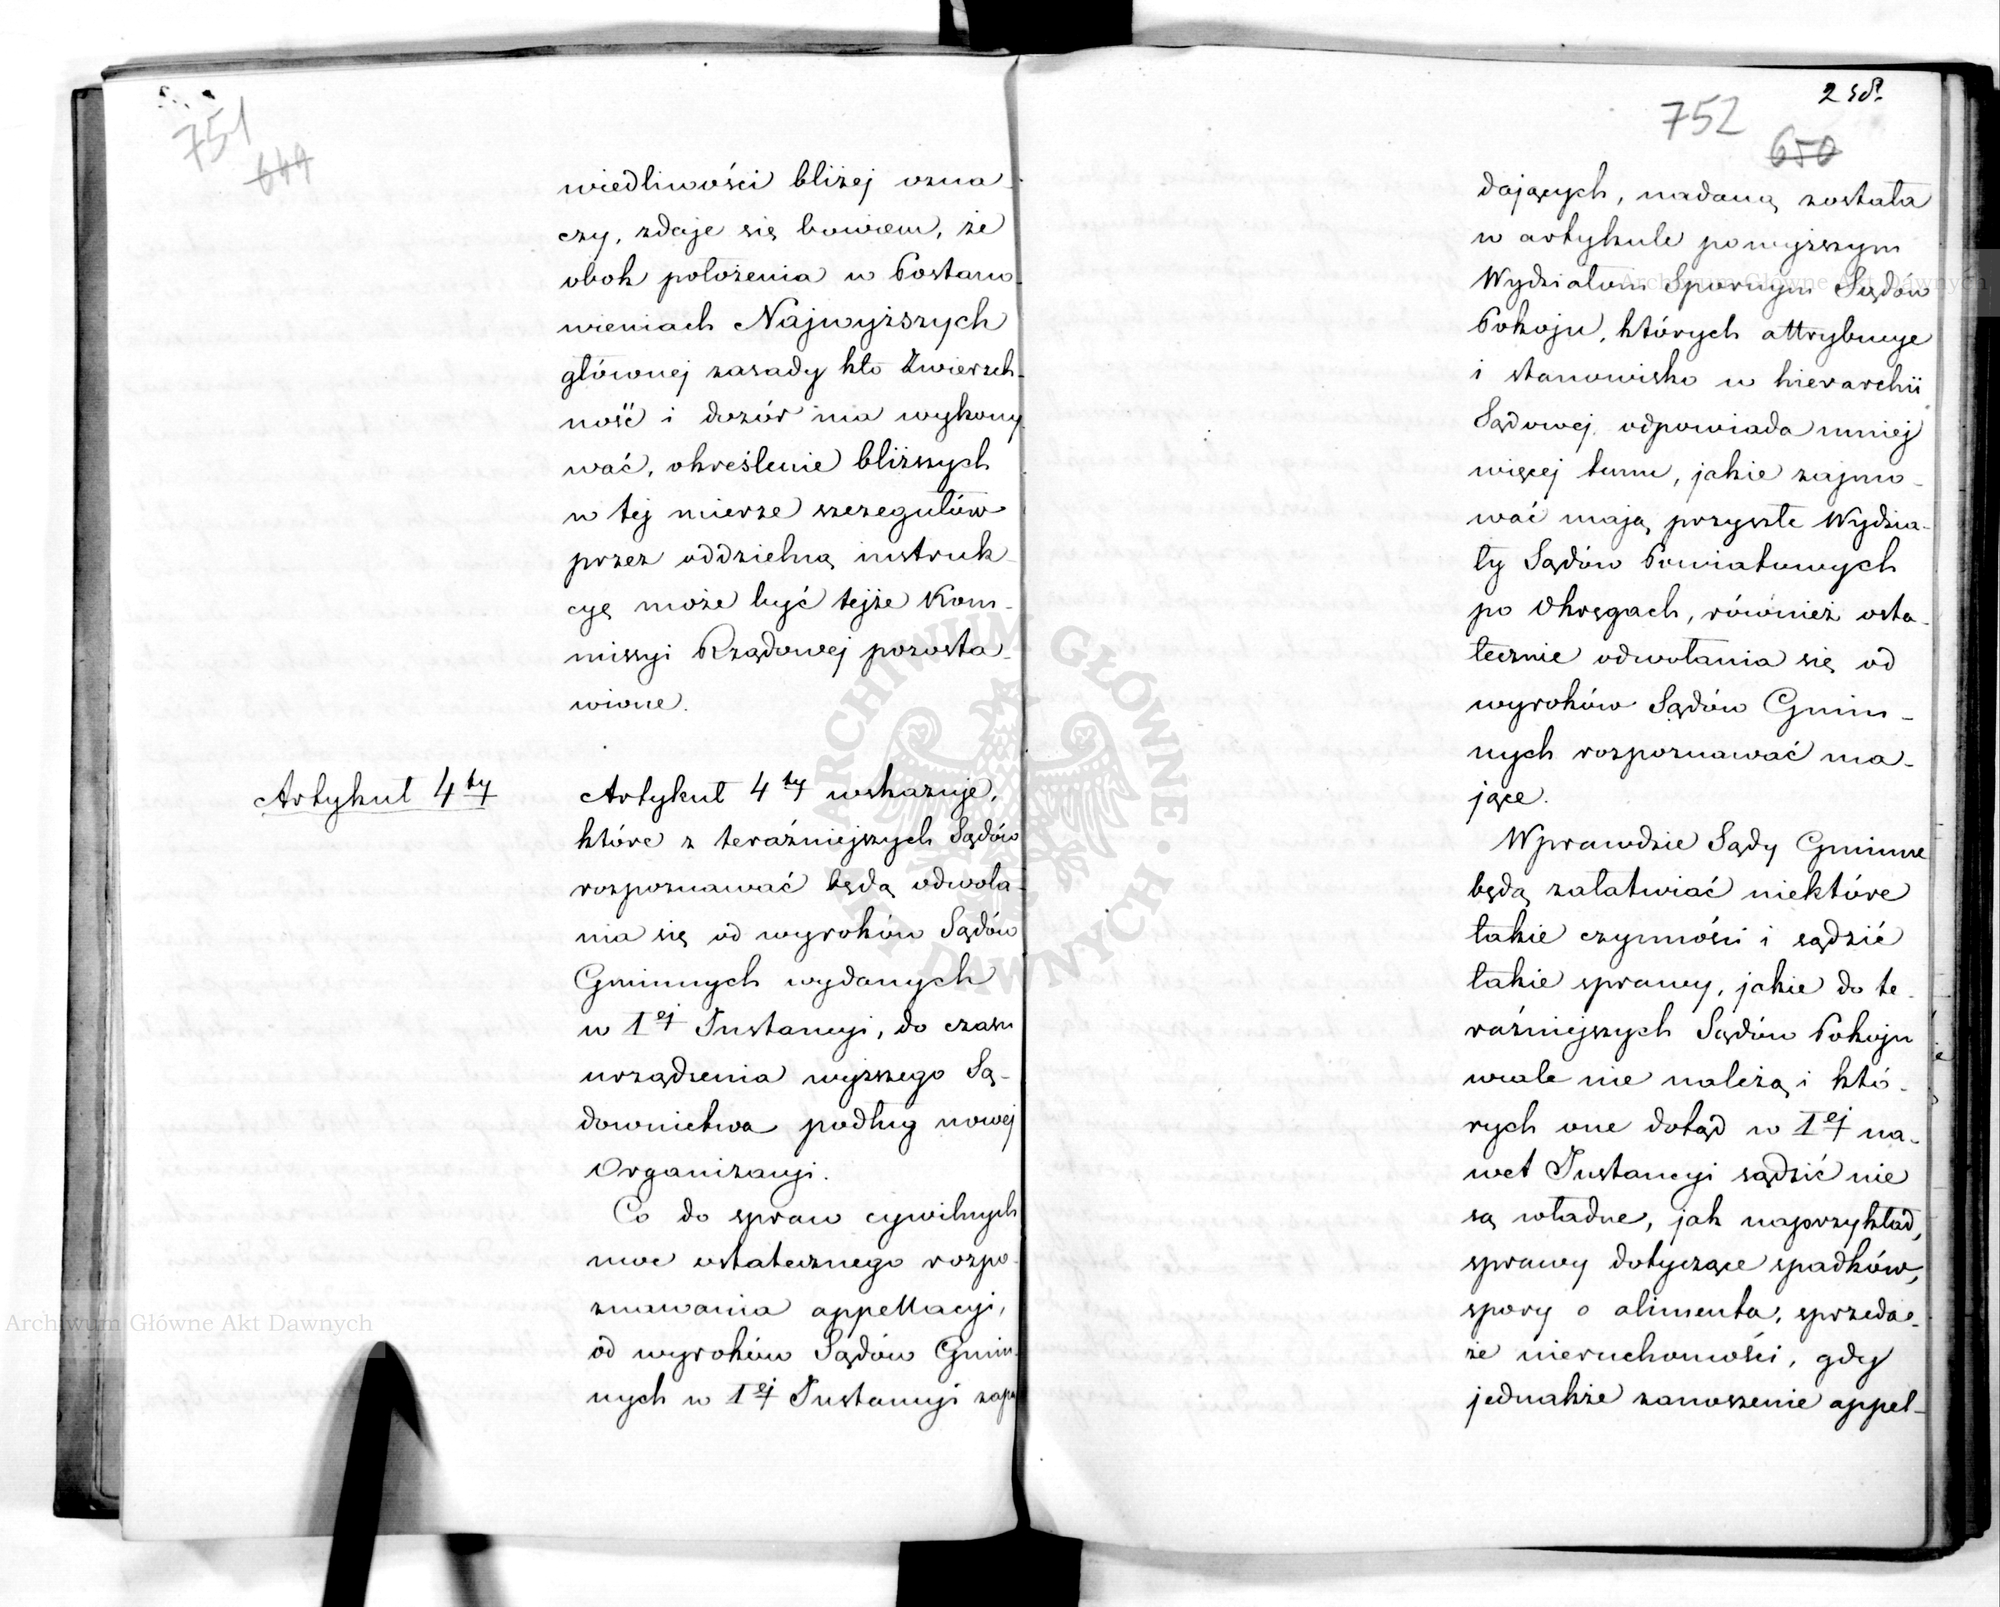 751
649
wiedliwości bliżej ozna-
czy, zdaje się bowiem, że
obok położenia w Postano-
wieniach Najwyższych
głównej zasady kto Zwierzch-
ność i dozór ma wykony
wać, określenie bliższych
w tej mierze szczegułów
przez oddzielną instruk-
cyę może być tejże Kom-
missyi Rządowej pozosta-
wione.
Artykuł 4ty
Artykuł 4ty wskazuje,
które z teraźniejszych Sądów
rozpoznawać będą odwoła-
nia się od wyroków Sądów
Gminnych wydanych
w 1ej Instancyi, do czasu
urządzenia wyższego Są-
downictwa podług nowej
Organizacyi.
Co do spraw cywilnych
moc ostatecznego rozpo-
znawania appellacyi,
od wyroków Sądów Gmin-
nych w 1ej Instancyi zapa
752
258.
650
dających, nadaną została
w artykule powyższym
Wydziałom Spornym Sądów
Pokoju, których attrybucye
i stanowisko w hierarchii
Sądowej odpowiada mniej
więcej temu, jakie zajmo-
wać mają przyszłe Wydzia-
ły Sądów Powiatowych
po Okręgach, również osta-
tecznie odwołania się od
wyroków Sądów Gmin-
nych rozpoznawać ma-
jące.
Wprawdzie Sądy Gminne
będą załatwiać niektóre
takie czynności i sądzić
takie sprawy, jakie do te-
raźniejszych Sądów Pokoju
wcale nie należą i któ-
rych one dotąd w 1ej na-
wet Instancyi sądzić nie
są władne, jak naprzykład,
sprawy dotyczące spadków,
spory o alimenta, sprzeda-
że nieruchomości, gdy
jednakże zanoszenie appel-
Archiwum Główne Akt Dawnych
Archiwum Główne Akt Dawnych
ARCHIWUM GŁÓWNE AKT DAWNYCH